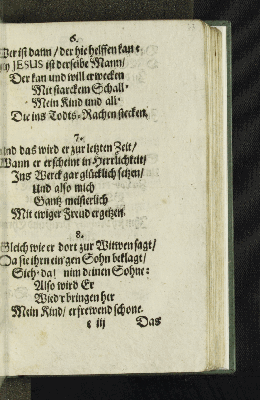 6.
Wer ist dann / der hie helffen kan?
Ey JESUS ist derselbe Mann /
Der kan und will erwecken
Mit starckem Schall
Mein Kind und all
Die ins Todts-Rachen stecken.
7.
Und das wird er zur letzten Zeit /
Wann er erscheint in Herrlichkeit /
Ins Werck gar glücklich setzen /
Und also mich
Gantz meisterlich
Mit ewiger Freud ergetzen.
8.
Gleich wie er dort zur Witwen sagt /
Da sie ihrn ein'gen Sohn beklagt /
Sich da! nim deinen Sohne:
Also wird Er
Wied'r bringen her
Mein Kind / erfrewend schone.
e iij Das